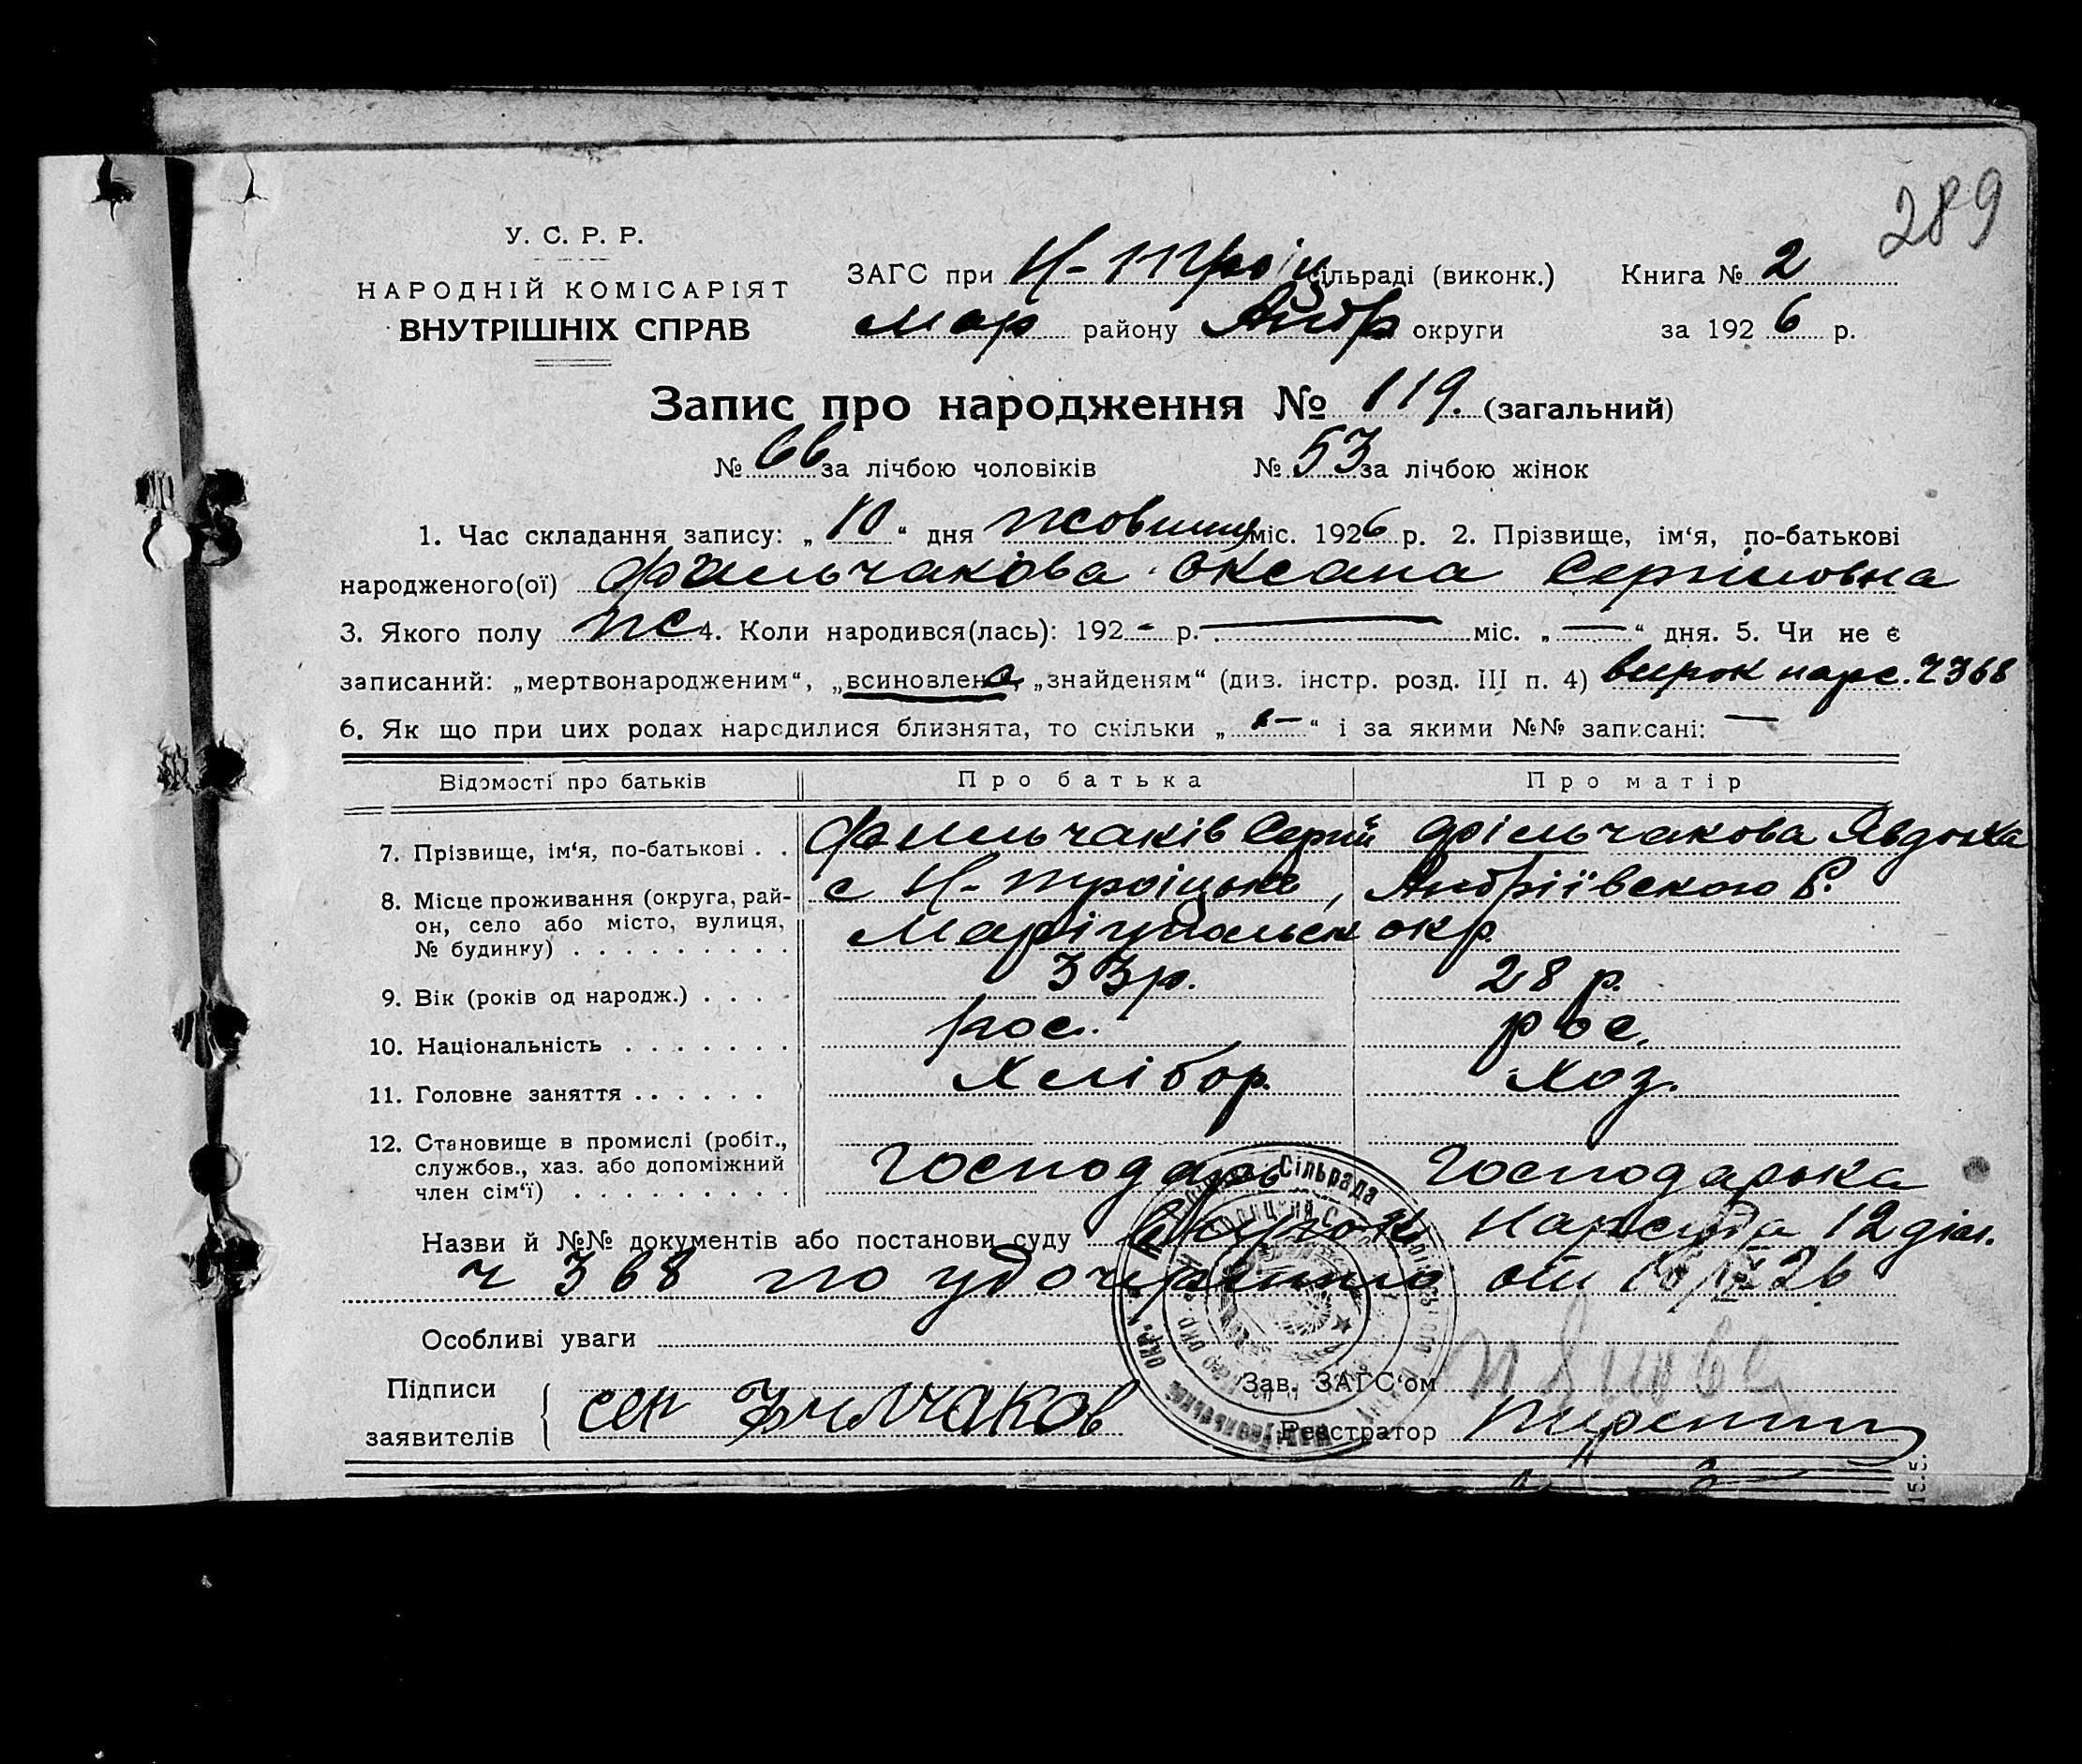 289
У. С. Р. Р.
НАРОДНІЙ КОМІСАРІЯТ
ВНУТРІШНІХ СПРАВ
ЗАГС при Н-Троіц сільраді (виконк.) Книга № 2
Мар району Андр округи за 1926 р.
Запис про народження № 119. (загальний)
№ 66 за лічбою чоловіків № 53 за лічбою жінок
1. Час складання запису: „10“ дня жовтня міс. 1926 р. 2. Прізвище, ім‘я, по-батькові
народженого(ої) Фильчакова Оксана Сергіиовна
3. Якого полу ж 4. Коли народився(лась): 192 - р. — міс. „ — “ дня. 5. Чи не є
записаний: „мертвонародженим“, „всиновлена, „знайденям“ (див. інстр. розд. III п. 4) вирок нарс. ч 368
6. Як що при цих родах народилися близнята, то скільки „ — “ і за якими №№ записані: —
Відомості про батьків Про батька Про матір
7. Прізвище, ім‘я, по-батькові . . Фильчаків Сергій Фільчакова Явдоха
8. Місце проживання (округа, рай-
он, село або місто, вулиця,
№ будинку) . . . . . . . . . с Н-Троіцьке, Андріївского Р.
Маріупольск окр.
9. Вік (років од народж.) . . . . 33 р. 28 р.
10. Національність . . . . . . . рос. рос.
11. Головне заняття . . . . . . Хлібор. Хоз.
12. Становище в промислі (робіт.,
службов., хаз. або допоміжний
член сім‘ї) . . . . . . . . . Господарь Господарька
Назви й №№ документів або постанови суду Вирок Нарсуда 12 діл.
ч 368 по удочерінню від
Особливі уваги
Підписи
заявителів сеп Филчаков
Зав. ЗАГС‘ом
Реєстратор
Сільрада
15.5.